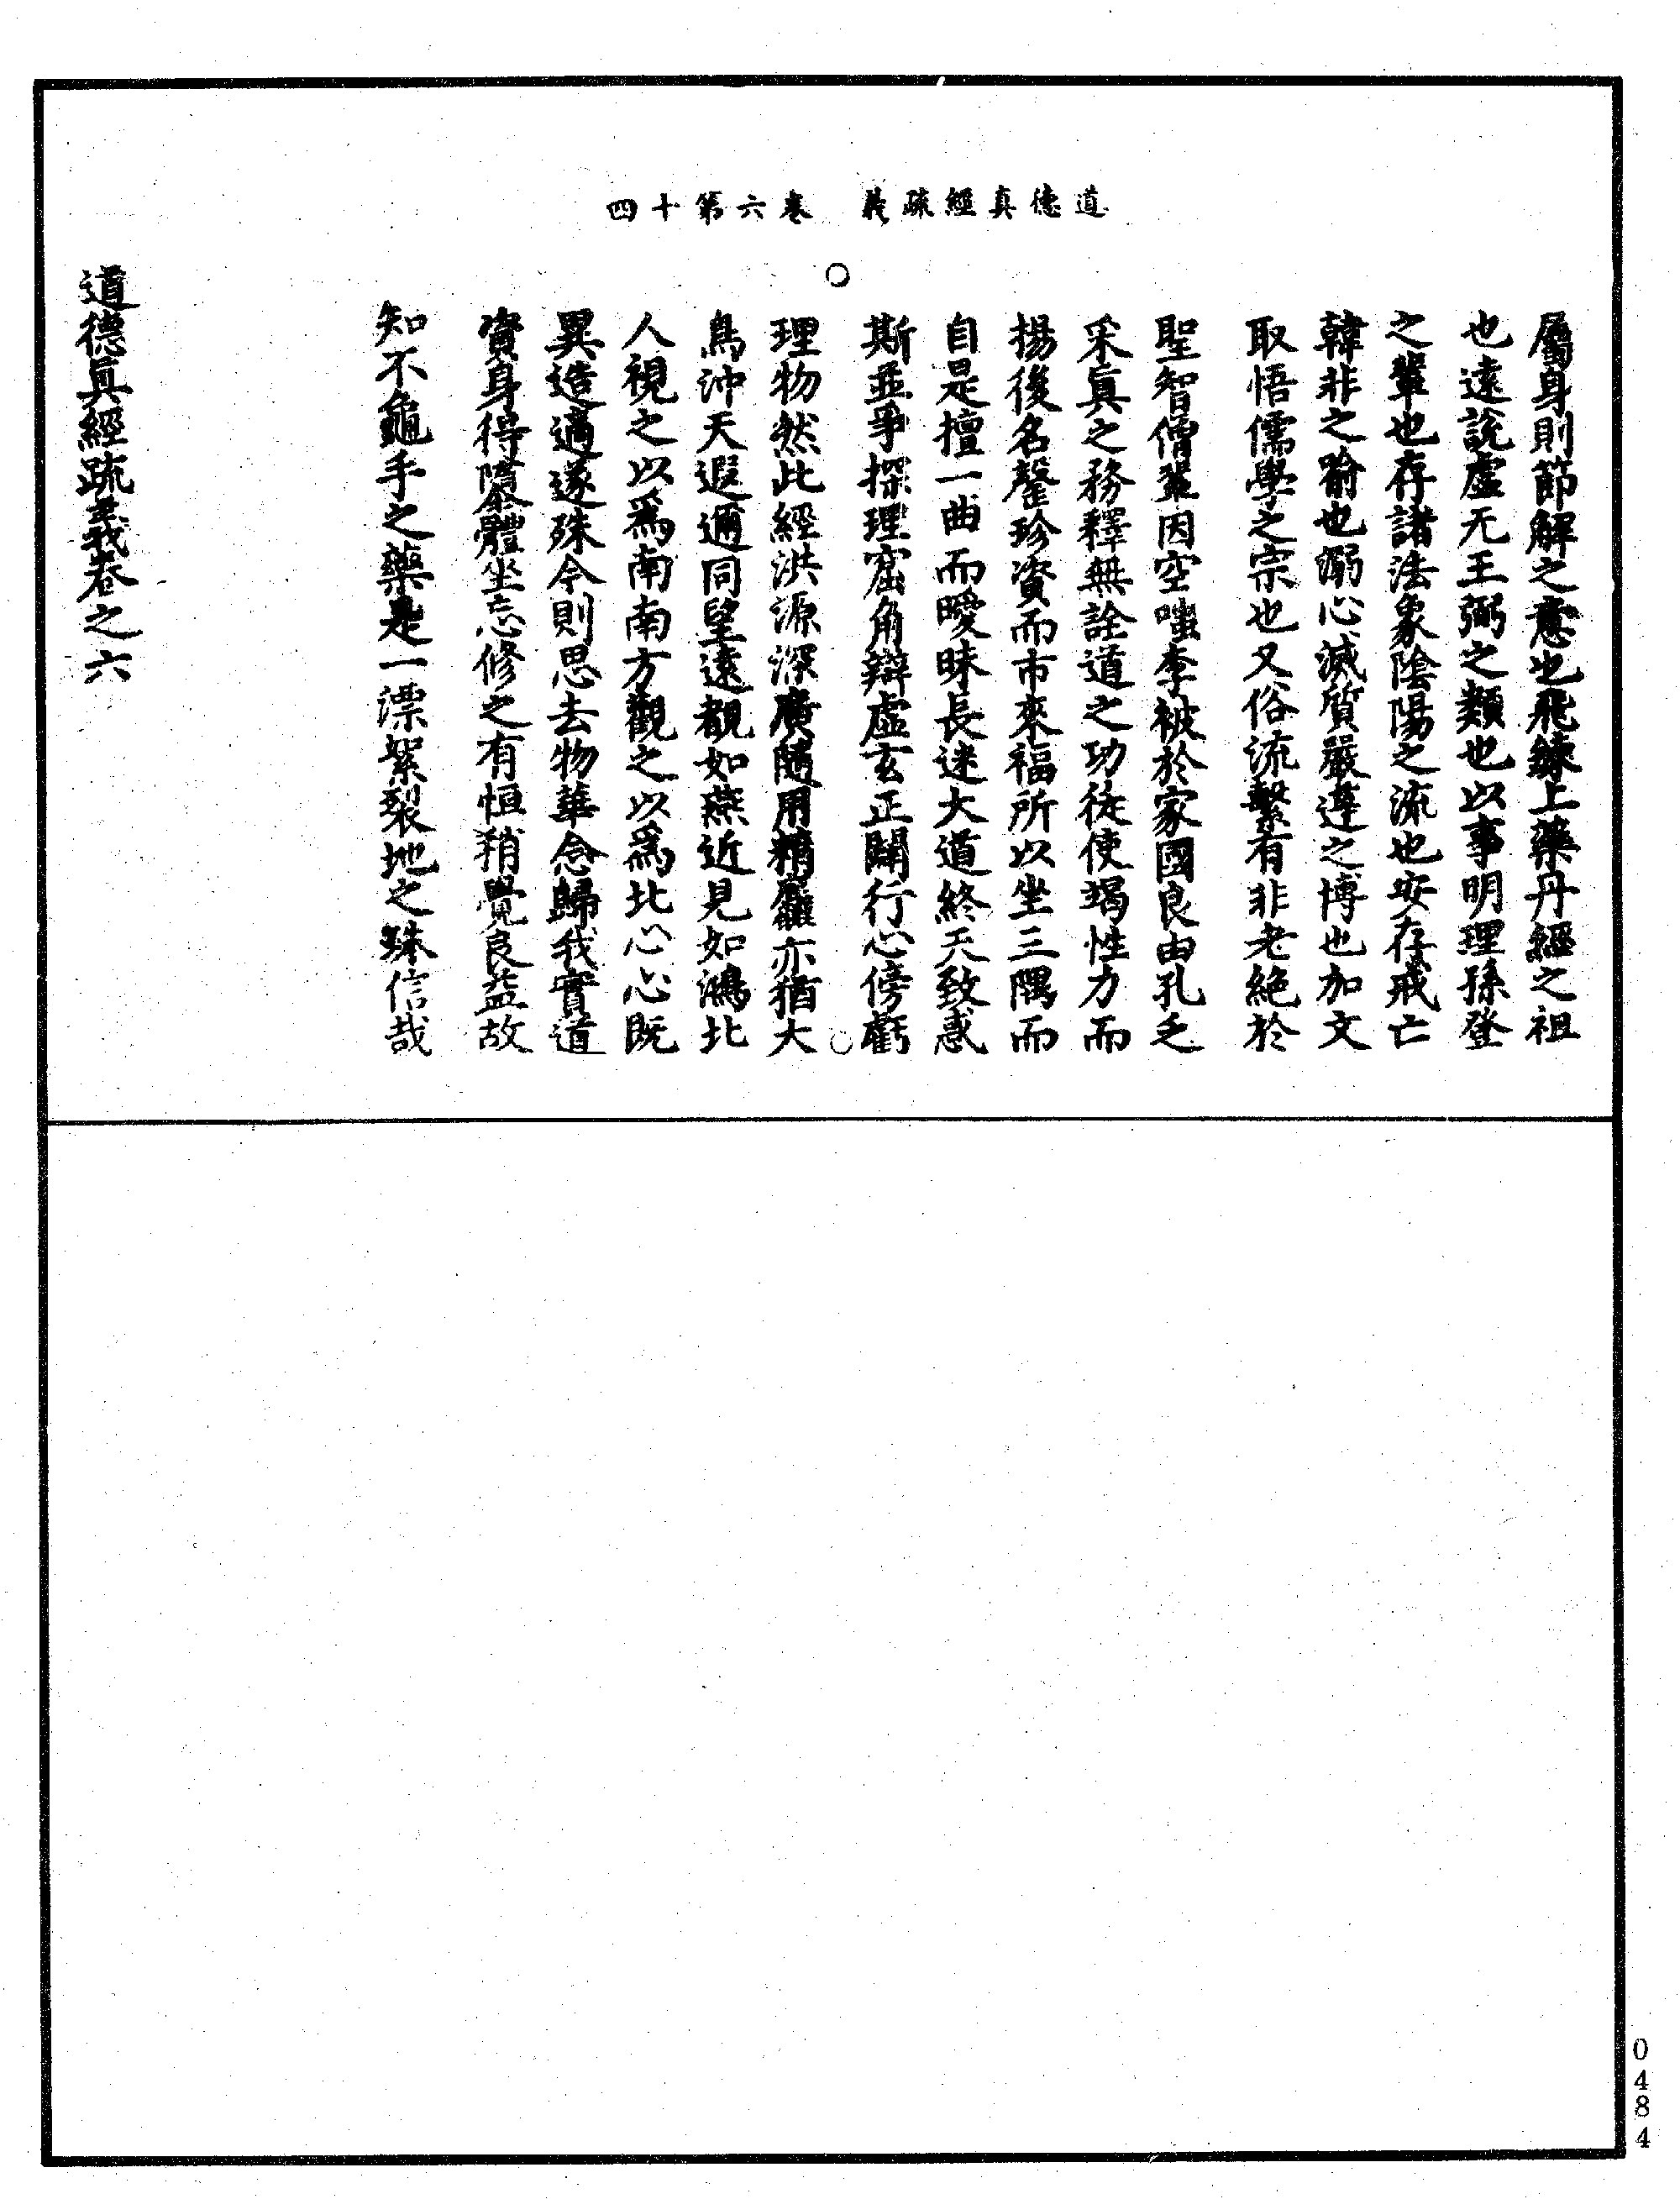 道德真經疏義　卷六第十四
屬身則節解之意也飛鍊上藥丹經之祖
也遠說虛无王弼之類也以事明理孫登
之輩也存諸法象陰陽之流也安存戒亡
韓非之喻也溺心滅質嚴遵之博也加文
取悟儒學之宗也又俗流繫有非老絕於
聖智僧輩因空嗤李被於家國良由孔乏
采眞之務釋無詮道之功徒使竭性力而
揚後名罄珍資而市來福所以坐三隅而
自是擅一曲而曖昧長迷大道終天致惑
斯並爭探理窟角辯虛玄正闢行心傍虧
理物然此經洪源深廣隨用精麤亦猶大
鳥沖天遐邇同望遠觀如燕近見如鴻北
人視之以爲南南方觀之以爲北心心既
異造適遂殊今則思去物華念歸我實道
資身得隳體坐忘修之有恒稍覺良益故
知不龜手之藥是一漂絮裂地之殊信哉
道德眞經疏義卷之六
0484